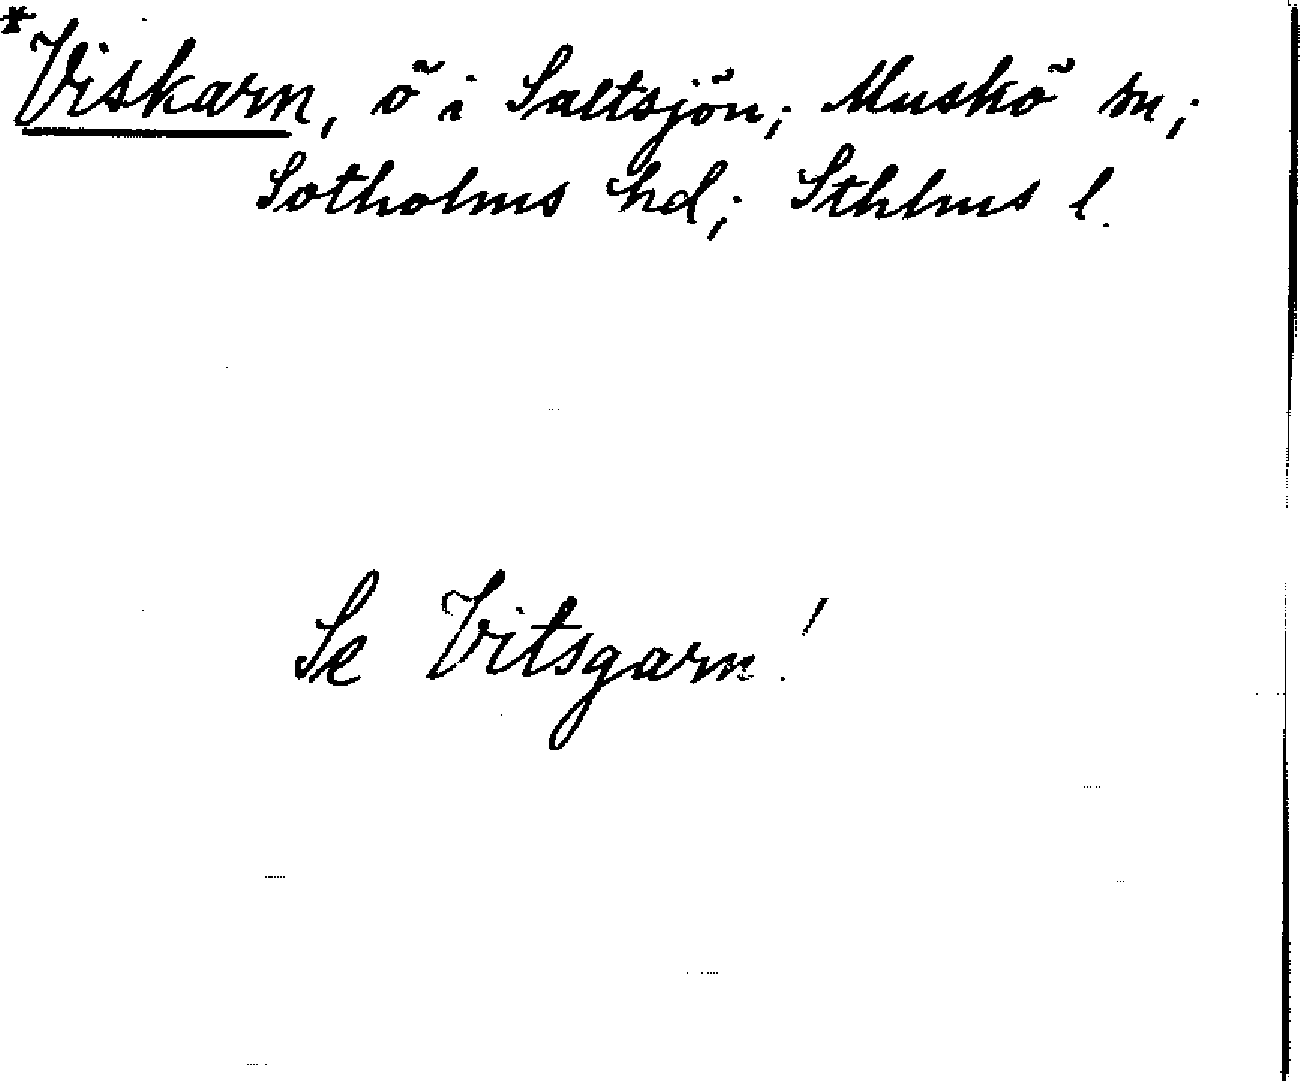 *Viskarn, ö i Saltsjön; Muskö sn;
Sotholms hd; Sthlms l.
Se Vitsgarn!